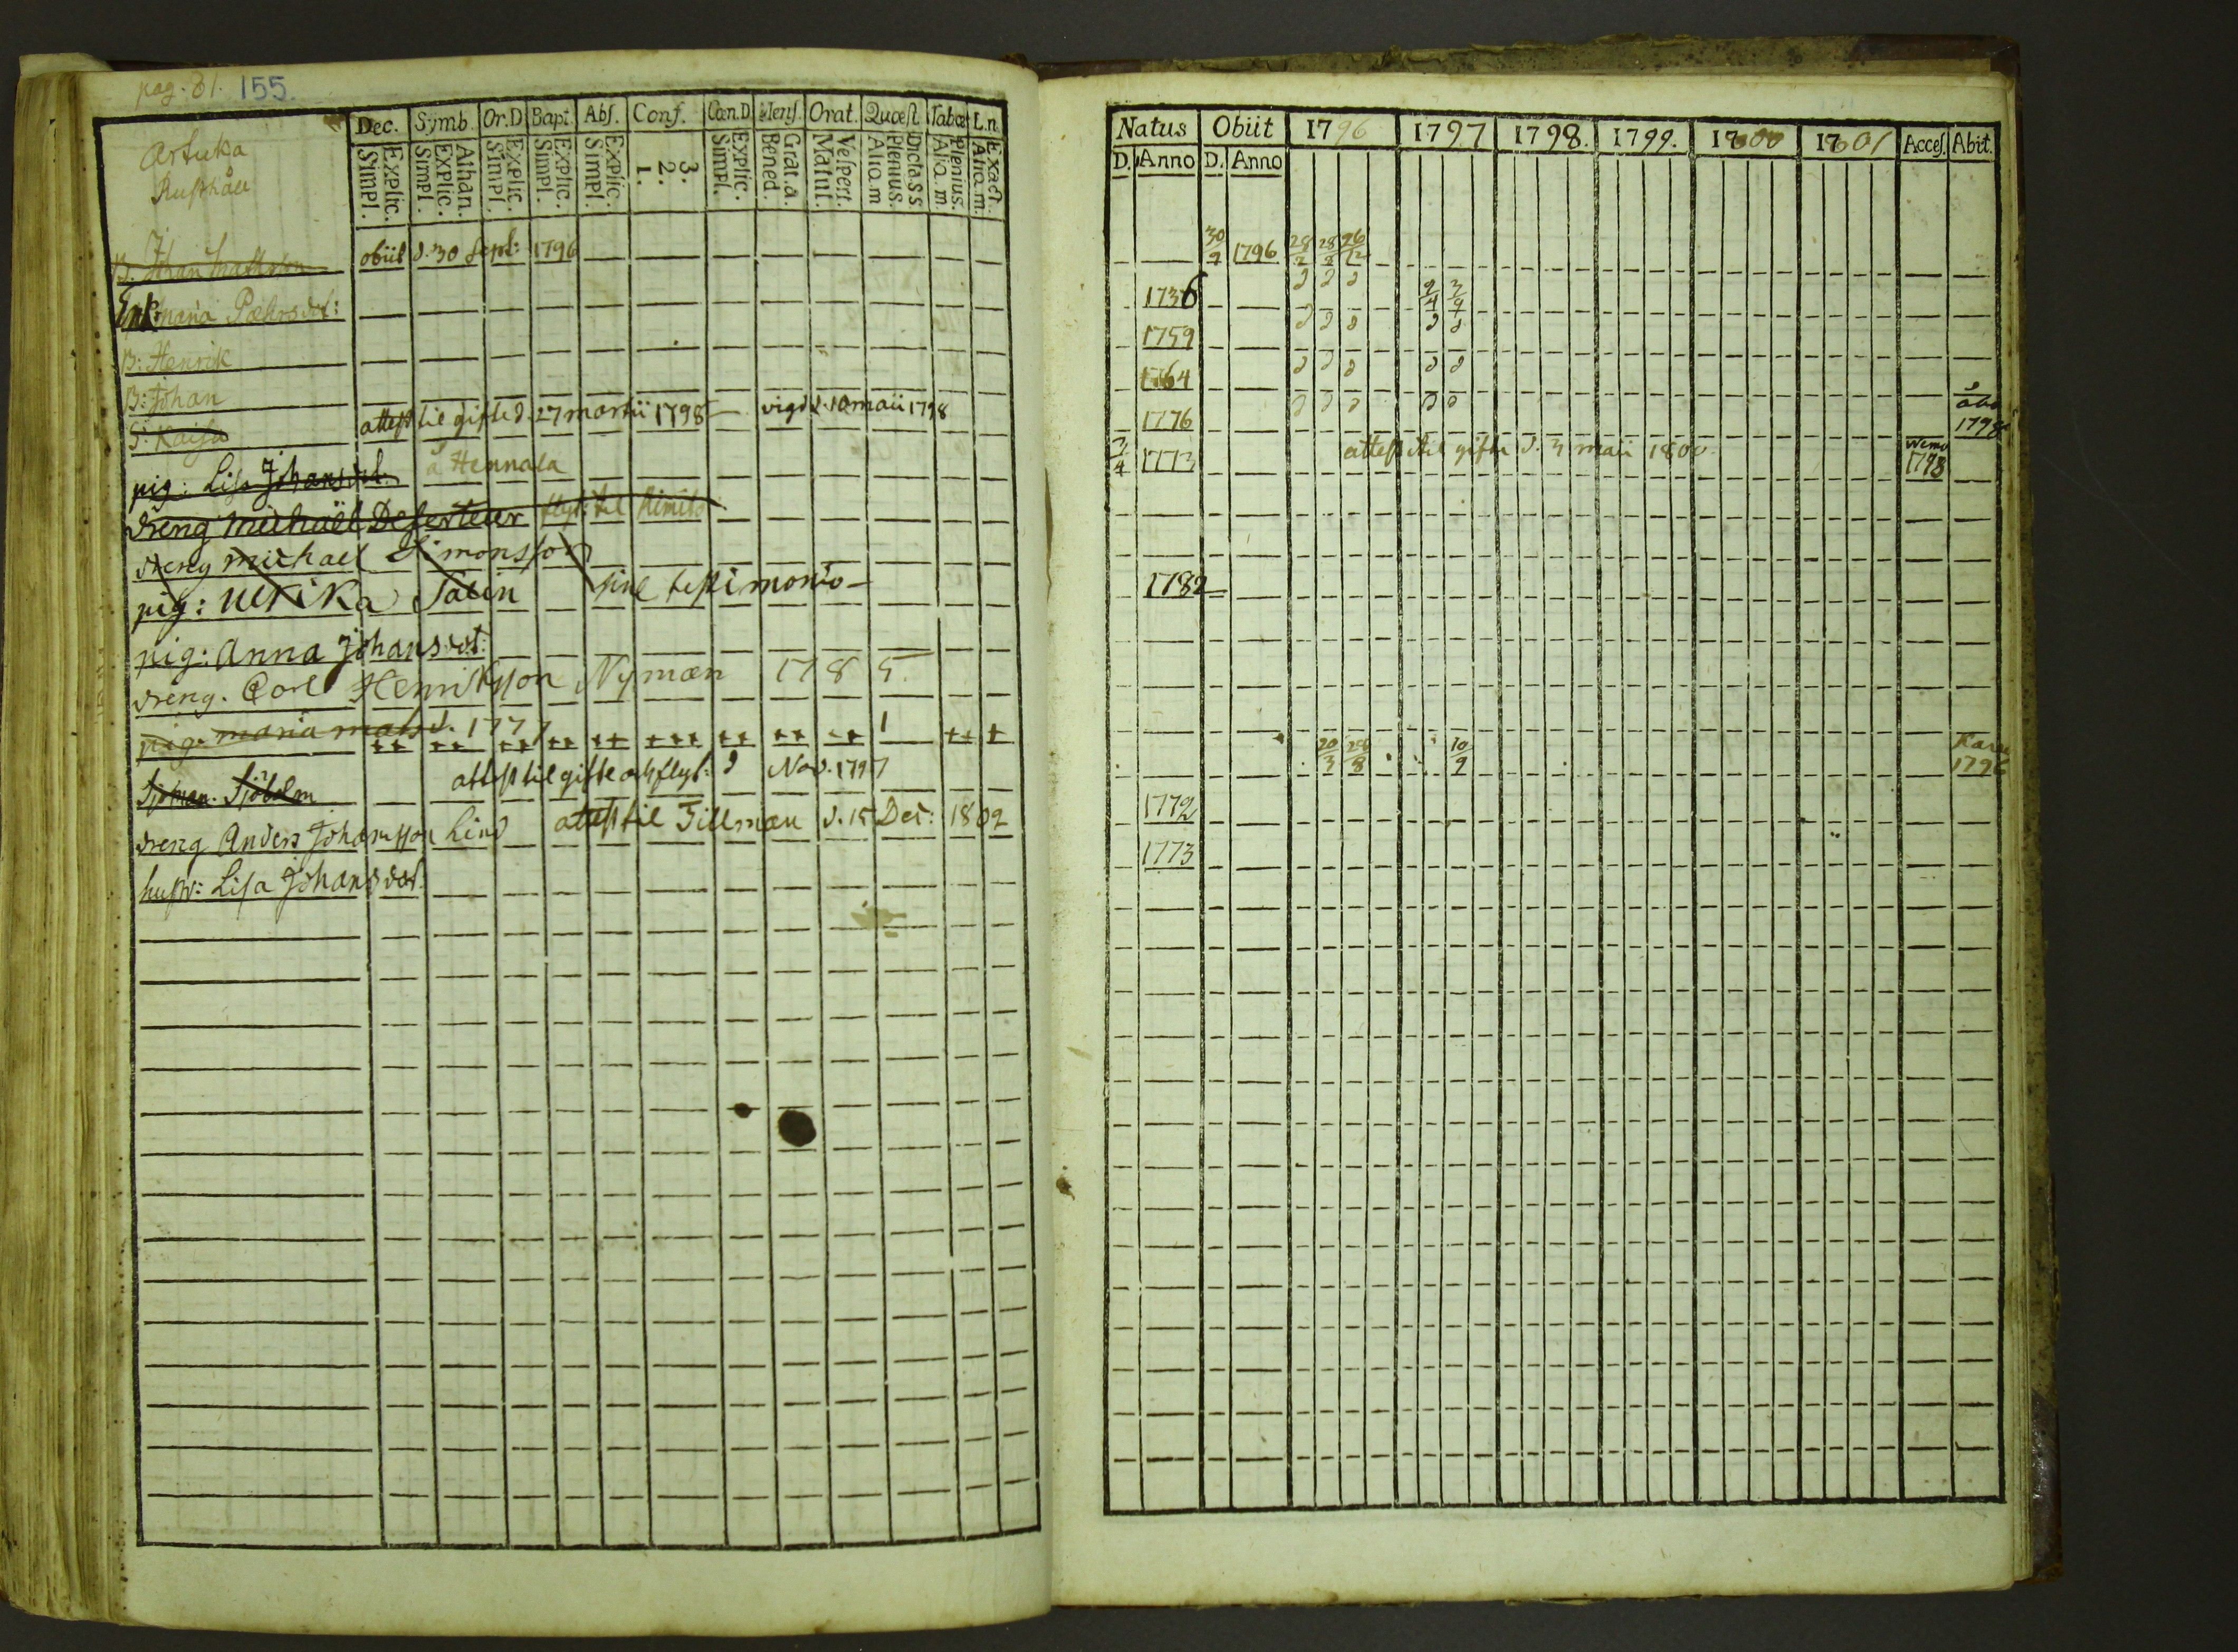 pag. 81. 155.
Artuka
Rusthåll
Dec. Symb. Or.D Bapt. Abs. Conf. Cœn.D Mens. Orat. Quæst. Tabœ L.n.
Explic. Simpl. Athan. Explic. Simpl. Explic. Simpl. Explic. Simpl. Explic. Simpl. 3. 2. 1. Explic. Simpl. Grat.a. Bened. Vespert. Matut. Dicta S S Plenius. Aliq.m Plenius. Aliq.m. Exact. Aliq.m.
B. Johan Mattsson obiit d. 30 Sept: 1796
Enk: Maria Pæhrsdot:
B: Henrik
B: Johan
D: Kaisa attest til gifte d. 27 martii 1798 vigd d. 10 maii 1798
pig: Lisa Johansdot: å Hennala
dreng Michaël Deserteur flyt: til Rimito
dreng Michael Simonsson
pig: Ulrika Salin sine testimonio
pig: Anna Johansdot:
dreng. Carl Henriksson Nyman 1785.
pig. maria matsd. 1777
Sjöman. Sjöholm attest til gifte och flyt: d Nov. 1797
dreng Anders Johansson Lind attest til Tillman d. 15 Dec: 1802
hustr: Lisa Johansdot:
Natus Obiit 1796 1797 1798. 1799. 1800 1801 Acces. Abit.
D. Anno D. Anno
30/9 1796 28/2 28/8 26/12
1736 2/4 3/9
1759
1764
1776 åbo 1798
3/4 1773 attest til gifte d. 3 maii 1800 Wemo 1798
1782
20/3 28/8 10/9 1796
1772
1773